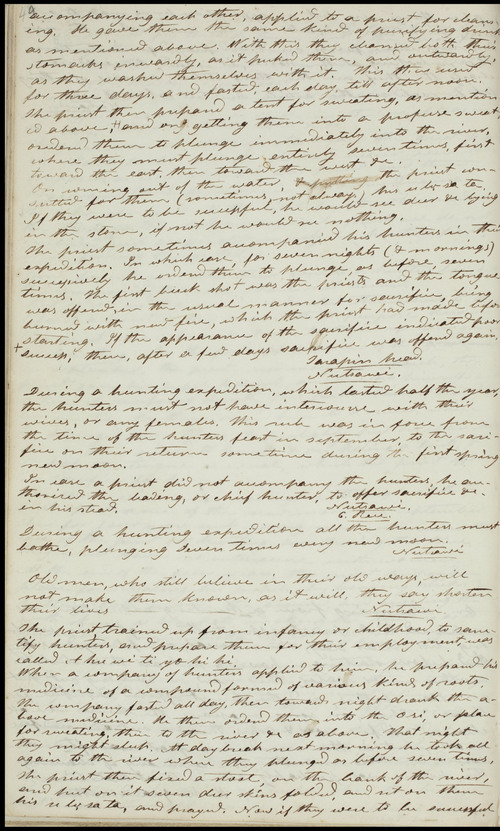 accompanying each other, applied to a priest for cleans-
ing. He gave them the same kind of purifying drink
as mentioned above. With this they cleansed both their
stomachs inwardly, as it puked them, and outwardly,
as they washed themselves with it. This they used
for three days, and fasted each day till after noon.
The priest then prepared a tent for sweating, as mention-
ed above, and on getting them into a profuse sweat,
ordered them to plunge immediately into the river,
where they must plunge entirely seven times, first
toward the east, then toward the west &c.
On coming out of the water, & the priest con-
sulted for them (sometimes, not always) his u lv sa ta.
If they were to be successful, he would see deer &c lying
in the stone, if not he would see nothing.
The priest sometimes accompanied his hunters in their
expedition. In which case, for seven nights (& mornings)
successively he ordered them to plunge, as before seven
times. The first buck shot was the priests and the tongue
was offered, in the usual manner for sacrifice, being
burned with new fire, which the priest had made before
starting. If the appearance of the sacrifice indicated poor
success, then, after a few days sacrifice was offered again.
Terapin head.
Nutsawi.
During a hunting expedition, which lasted half the year,
the hunters must not have intercourse with their
wives, or any females. This rule was in force from
the time of the hunters feast in september, to the sacri-
fice on their return sometime during the first spring
new moon.
In case a priest did not accompany the hunters, he au-
thorized the leading, or chief hunter, to offer sacrifice &c.
in his stead. Nutsawi.
During a hunting expedition all the hunters must
bathe, plunging seven times every new moon.
Nutsawi
Old men, who still believe in their old ways, will
not make them known, as it will, they say shorten
their lives Nutsawi
The priest trained up from infancy or childhood, to sanc-
tify hunters, and prepare them for their employment was
called
When a company of hunters applied to him, he prepared his
medicine of a compound formed of various kinds of roots.
The company fasted all day, then toward night drank the a-
bove medicine. He then ordered them into the Osi, or place
for sweating, then to the river &c as above. That night
they might sleep. At day break next morning he took all
again to the river where they plunged as before seven times,
The priest then fixed a stool, on the bank of the river,
and put on it seven deer skins folded, and set on them
his u lv sa ta, and prayed. Now if they were to be successful